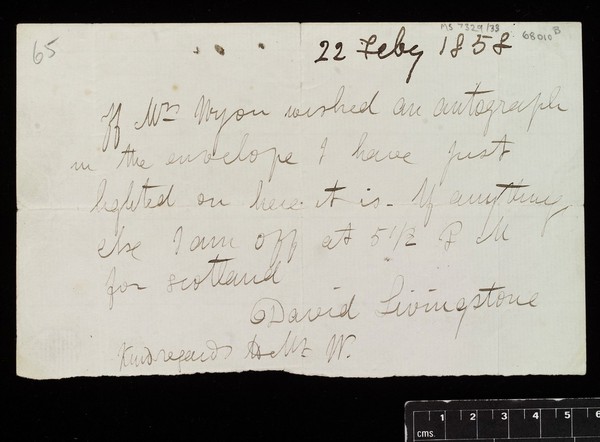 65
MS 7329/38
68010 B
22 Feby 1858
If Mrs Wyon wished an autograph
in the envelope I have just
lighted on here it is - If anything
else I am off at 5 1/2 P M
for Scotland
David Livingstone
Kind regards to Mr W.
cms
1 2 3 4 5 6